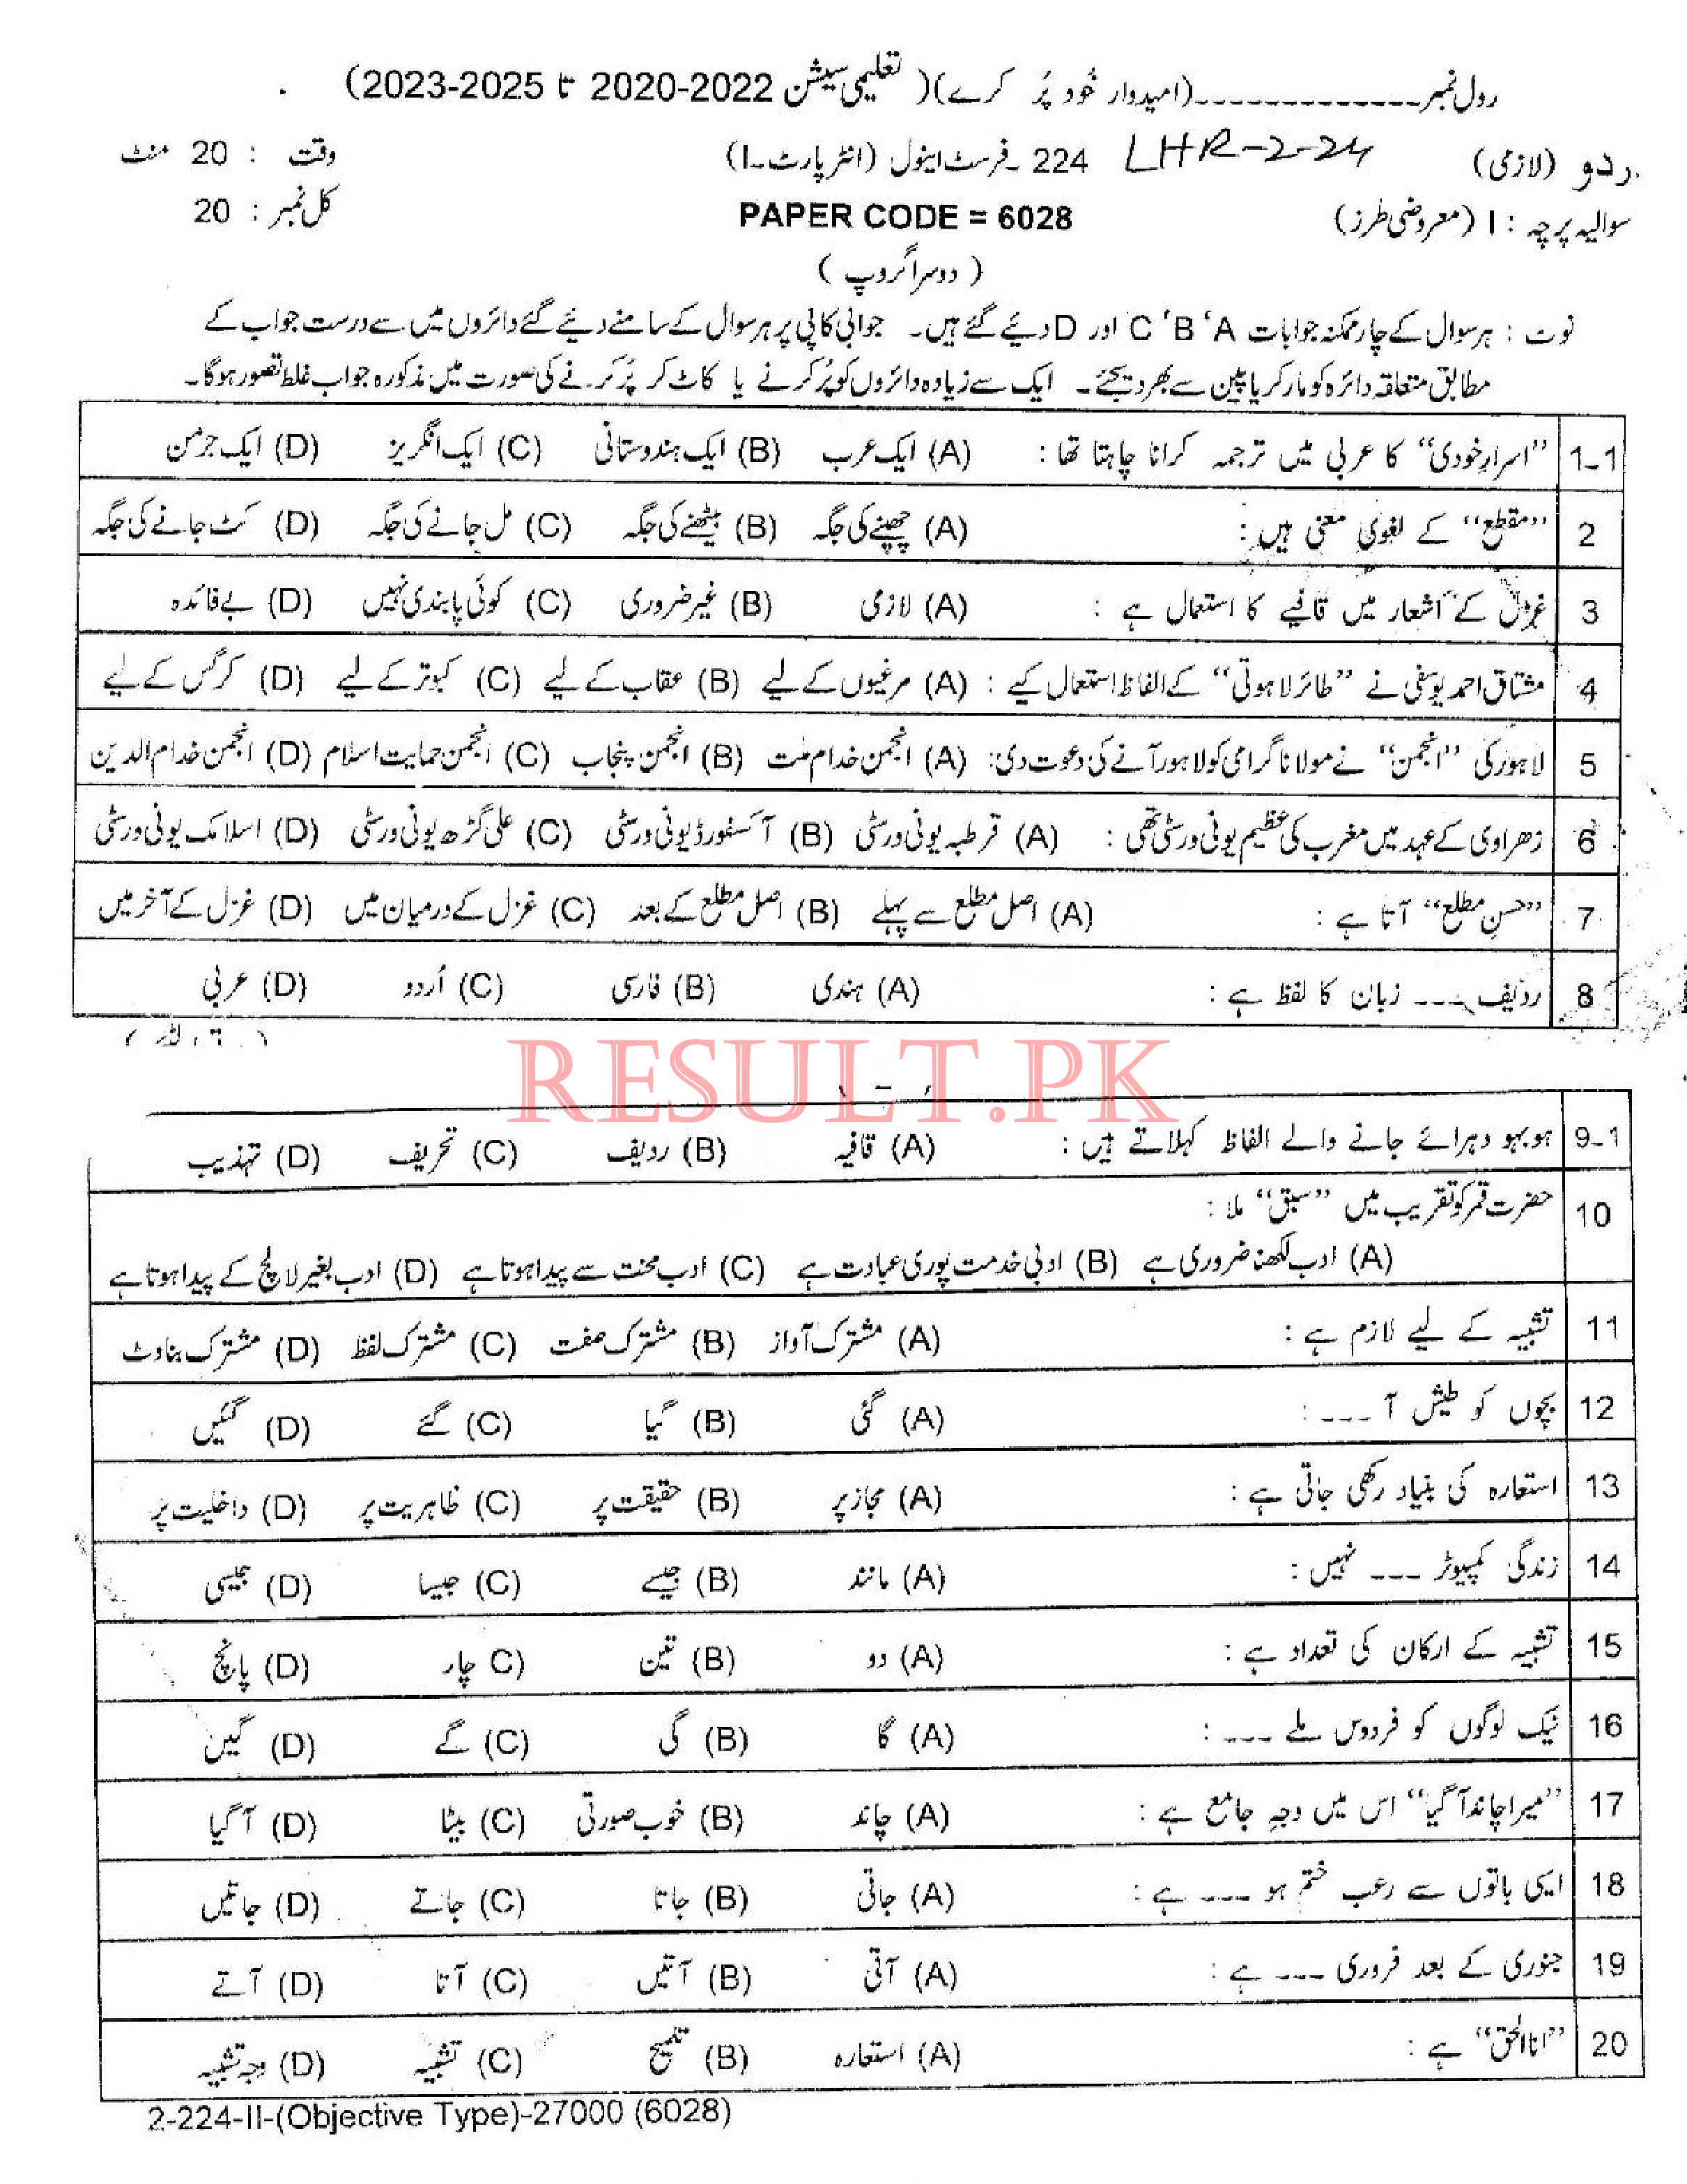 رول نمبر ------------- (امیدوار خُود پُر کرے) ( تعلیمی سیشن 2022-2020 تا 2025-2023)
ردو (لازمی) LHR-2-24 224 ۔ فرسٹ اینول (انٹر پارٹ ۔ I) وقت : 20 منٹ
سوالیہ پرچہ : I (معروضی طرز) PAPER CODE = 6028 کل نمبر : 20
( دوسرا گروپ )
نوٹ : ہر سوال کے چار ممکنہ جوابات A ‘ B ‘ C اور D دیئے گئے ہیں۔ جوابی کاپی پر ہر سوال کے سامنے دیئے گئے دائروں میں سے درست جواب کے
مطابق متعلقہ دائرہ کو مارکر یا پین سے بھر دیجئے۔ ایک سے زیادہ دائروں کو پُر کرنے یا کاٹ کر پُر کرنے کی صورت میں مذکورہ جواب غلط تصور ہوگا۔
1-1 ”اسرارِ خودی“ کا عربی میں ترجمہ کرانا چاہتا تھا : (A) ایک عرب (B) ایک ہندوستانی (C) ایک انگریز (D) ایک جرمن
2 ”مقطع“ کے لغوی معنی ہیں : (A) چھپنے کی جگہ (B) بیٹھنے کی جگہ (C) مل جانے کی جگہ (D) کٹ جانے کی جگہ
3 غزل کے اشعار میں قافیے کا استعمال ہے : (A) لازمی (B) غیر ضروری (C) کوئی پابندی نہیں (D) بے فائدہ
4 مشتاق احمد یوسفی نے ”طائر لاہوتی“ کے الفاظ استعمال کیے : (A) مرغیوں کے لیے (B) عقاب کے لیے (C) کبوتر کے لیے (D) کرگس کے لیے
5 لاہور کی ”انجمن“ نے مولانا گرامی کو لاہور آنے کی دعوت دی: (A) انجمن خدام ملت (B) انجمن پنجاب (C) انجمن حمایت اسلام (D) انجمن خدام الدین
6 زھراوی کے عہد میں مغرب کی عظیم یونی ورسٹی تھی : (A) قرطبہ یونی ورسٹی (B) آکسفورڈ یونی ورسٹی (C) علی گڑھ یونی ورسٹی (D) اسلامک یونی ورسٹی
7 ”حسنِ مطلع“ آتا ہے : (A) اصل مطلع سے پہلے (B) اصل مطلع کے بعد (C) غزل کے درمیان میں (D) غزل کے آخر میں
8 ردیف --- زبان کا لفظ ہے : (A) ہندی (B) فارسی (C) اُردو (D) عربی
RESULT.PK
9-1 ہوبہو دہرائے جانے والے الفاظ کہلاتے ہیں : (A) قافیہ (B) ردیف (C) تحریف (D) تہذیب
10 حضرت قمر کو تقریب میں ”سبق“ ملا :
(A) ادب لکھنا ضروری ہے (B) ادبی خدمت پوری عبادت ہے (C) ادب محنت سے پیدا ہوتا ہے (D) ادب بغیر لالچ کے پیدا ہوتا ہے
11 تشبیہ کے لیے لازم ہے : (A) مشترک آواز (B) مشترک صفت (C) مشترک لفظ (D) مشترک بناوٹ
12 بچوں کو طیش آ --- : (A) گئی (B) گیا (C) گئے (D) گئیں
13 استعارہ کی بنیاد رکھی جاتی ہے : (A) مجاز پر (B) حقیقت پر (C) ظاہریت پر (D) داخلیت پر
14 زندگی کمپیوٹر --- نہیں : (A) مانند (B) جیسے (C) جیسا (D) جیسی
15 تشبیہ کے ارکان کی تعداد ہے : (A) دو (B) تین C) چار (D) پانچ
16 نیک لوگوں کو فردوس ملے --- : (A) گا (B) گی (C) گے (D) گیں
17 ”میرا چاند آ گیا“ اس میں وجہِ جامع ہے : (A) چاند (B) خوب صورتی (C) بیٹا (D) آ گیا
18 ایسی باتوں سے رعب ختم ہو --- ہے : (A) جاتی (B) جاتا (C) جاتے (D) جاتیں
19 جنوری کے بعد فروری --- ہے : (A) آتی (B) آتیں (C) آتا (D) آتے
20 ”انا الحق“ ہے : (A) استعارہ (B) تلمیح (C) تشبیہ (D) وجہ تشبیہ
2-224-II-(Objective Type)-27000 (6028)